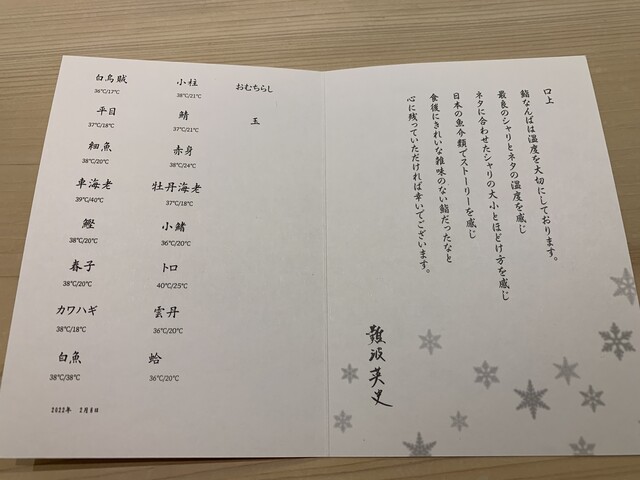 白烏賊
36℃/17℃
平目
37℃/18℃
細魚
38℃/20℃
車海老
39℃/40℃
鰹
38℃/20℃
春子
38℃/20℃
カワハギ
38℃/18℃
白魚
38℃/38℃
小柱
38℃/21℃
鯖
37℃/21℃
赤身
38℃/24℃
牡丹海老
37℃/18℃
小鰭
36℃/20℃
トロ
40℃/25℃
雲丹
36℃/20℃
蛤
36℃/20℃
おむちらし
玉
2022年 2月8日
口上
鮨なんばは温度を大切にしております。
最良のシャリとネタの温度を感じ
ネタに合わせたシャリの大小とほどけ方を感じ
日本の魚介類でストーリーを感じ
食後にきれいな雑味のない鮨だったなと
心に残っていただければ幸いでございます。
難波英史